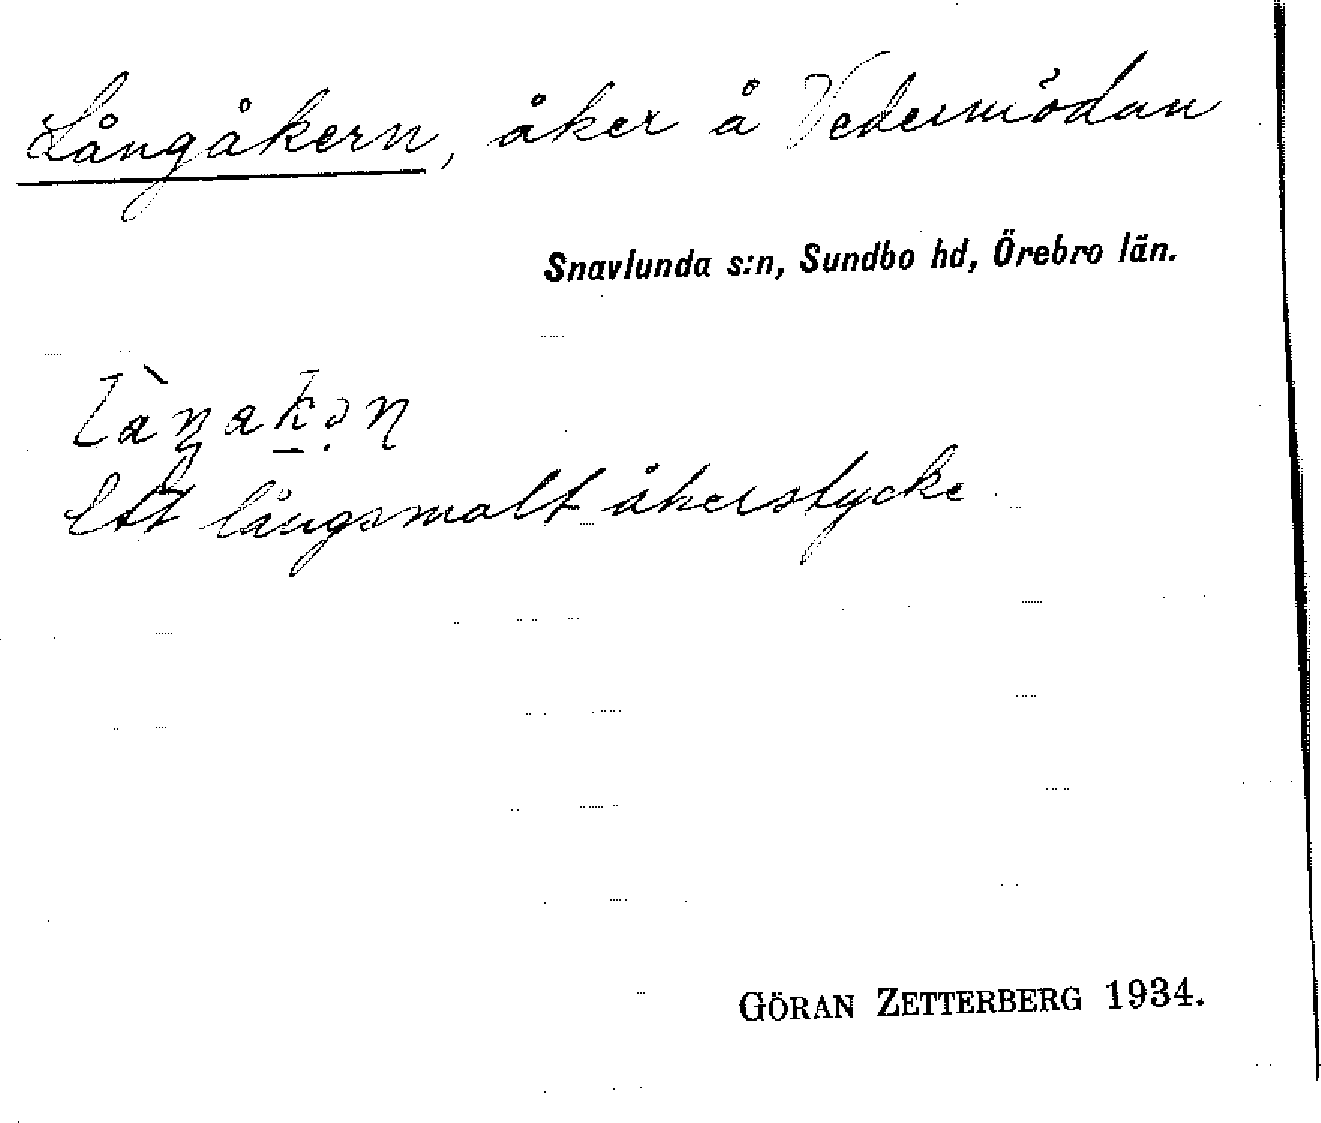 Långåkern, åker å Vedermödan
Snavlunda s:n, Sundbo hd, Örebro län.
Ett långsmalt åkerstycke.
GÖRAN ZETTERBERG 1934.